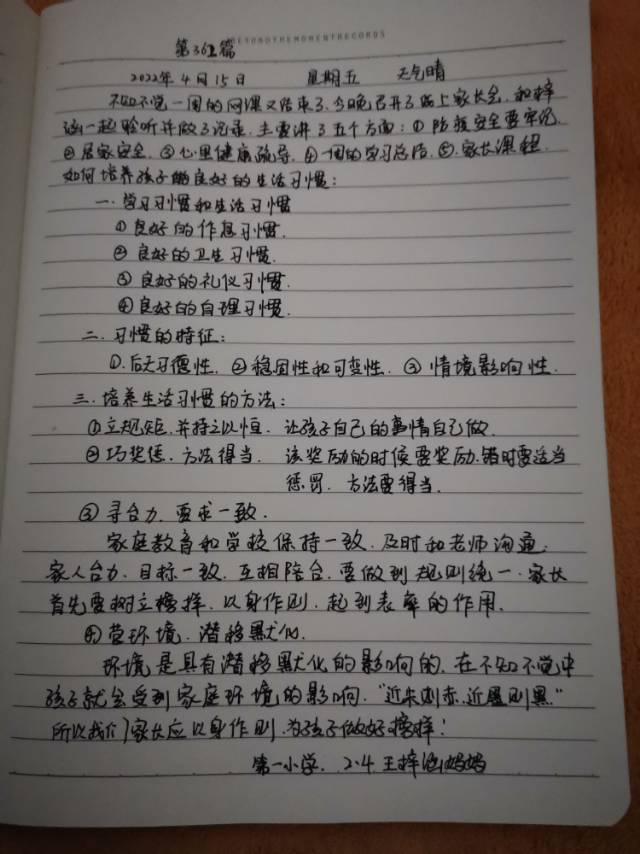 BEYONDTHEMOMENTRECORDS
第361篇
2022年4月15日 星期五 天气晴
不知不觉一周的网课又结束了,今晚召开了线上家长会,和梓
涵一起聆听并做了记录,主要讲了五个方面:①防疫安全要牢记
②居家安全,③心里健康疏导,④一周的学习总结,⑤家长课程.
如何培养孩子的良好的生活习惯:
一.学习习惯和生活习惯
①良好的作息习惯.
②良好的卫生习惯.
③良好的礼仪习惯.
④良好的自理习惯.
二.习惯的特征:
①.后天习德性,②稳固性和可变性,③情境影响性.
三.培养生活习惯的方法:
①立规矩,并持之以恒.让孩子自己的事情自己做.
②巧奖惩.方法得当.该奖励的时候要奖励.错时要适当
惩罚.方法要得当.
③寻合力.要求一致.
家庭教育和学校保持一致.及时和老师沟通;
家人合力.目标一致.互相陪合.要做到规则统一.家长
首先要树立榜样.以身作则.起到表率的作用.
④营环境.潜移默化.
环境是具有潜移默化的影响的.在不知不觉中
孩子就会受到家庭环境的影响."近朱则赤.近墨则黑"
所以我们家长应以身作则.为孩子做好榜样!
第一小学.2.4.王梓涵妈妈